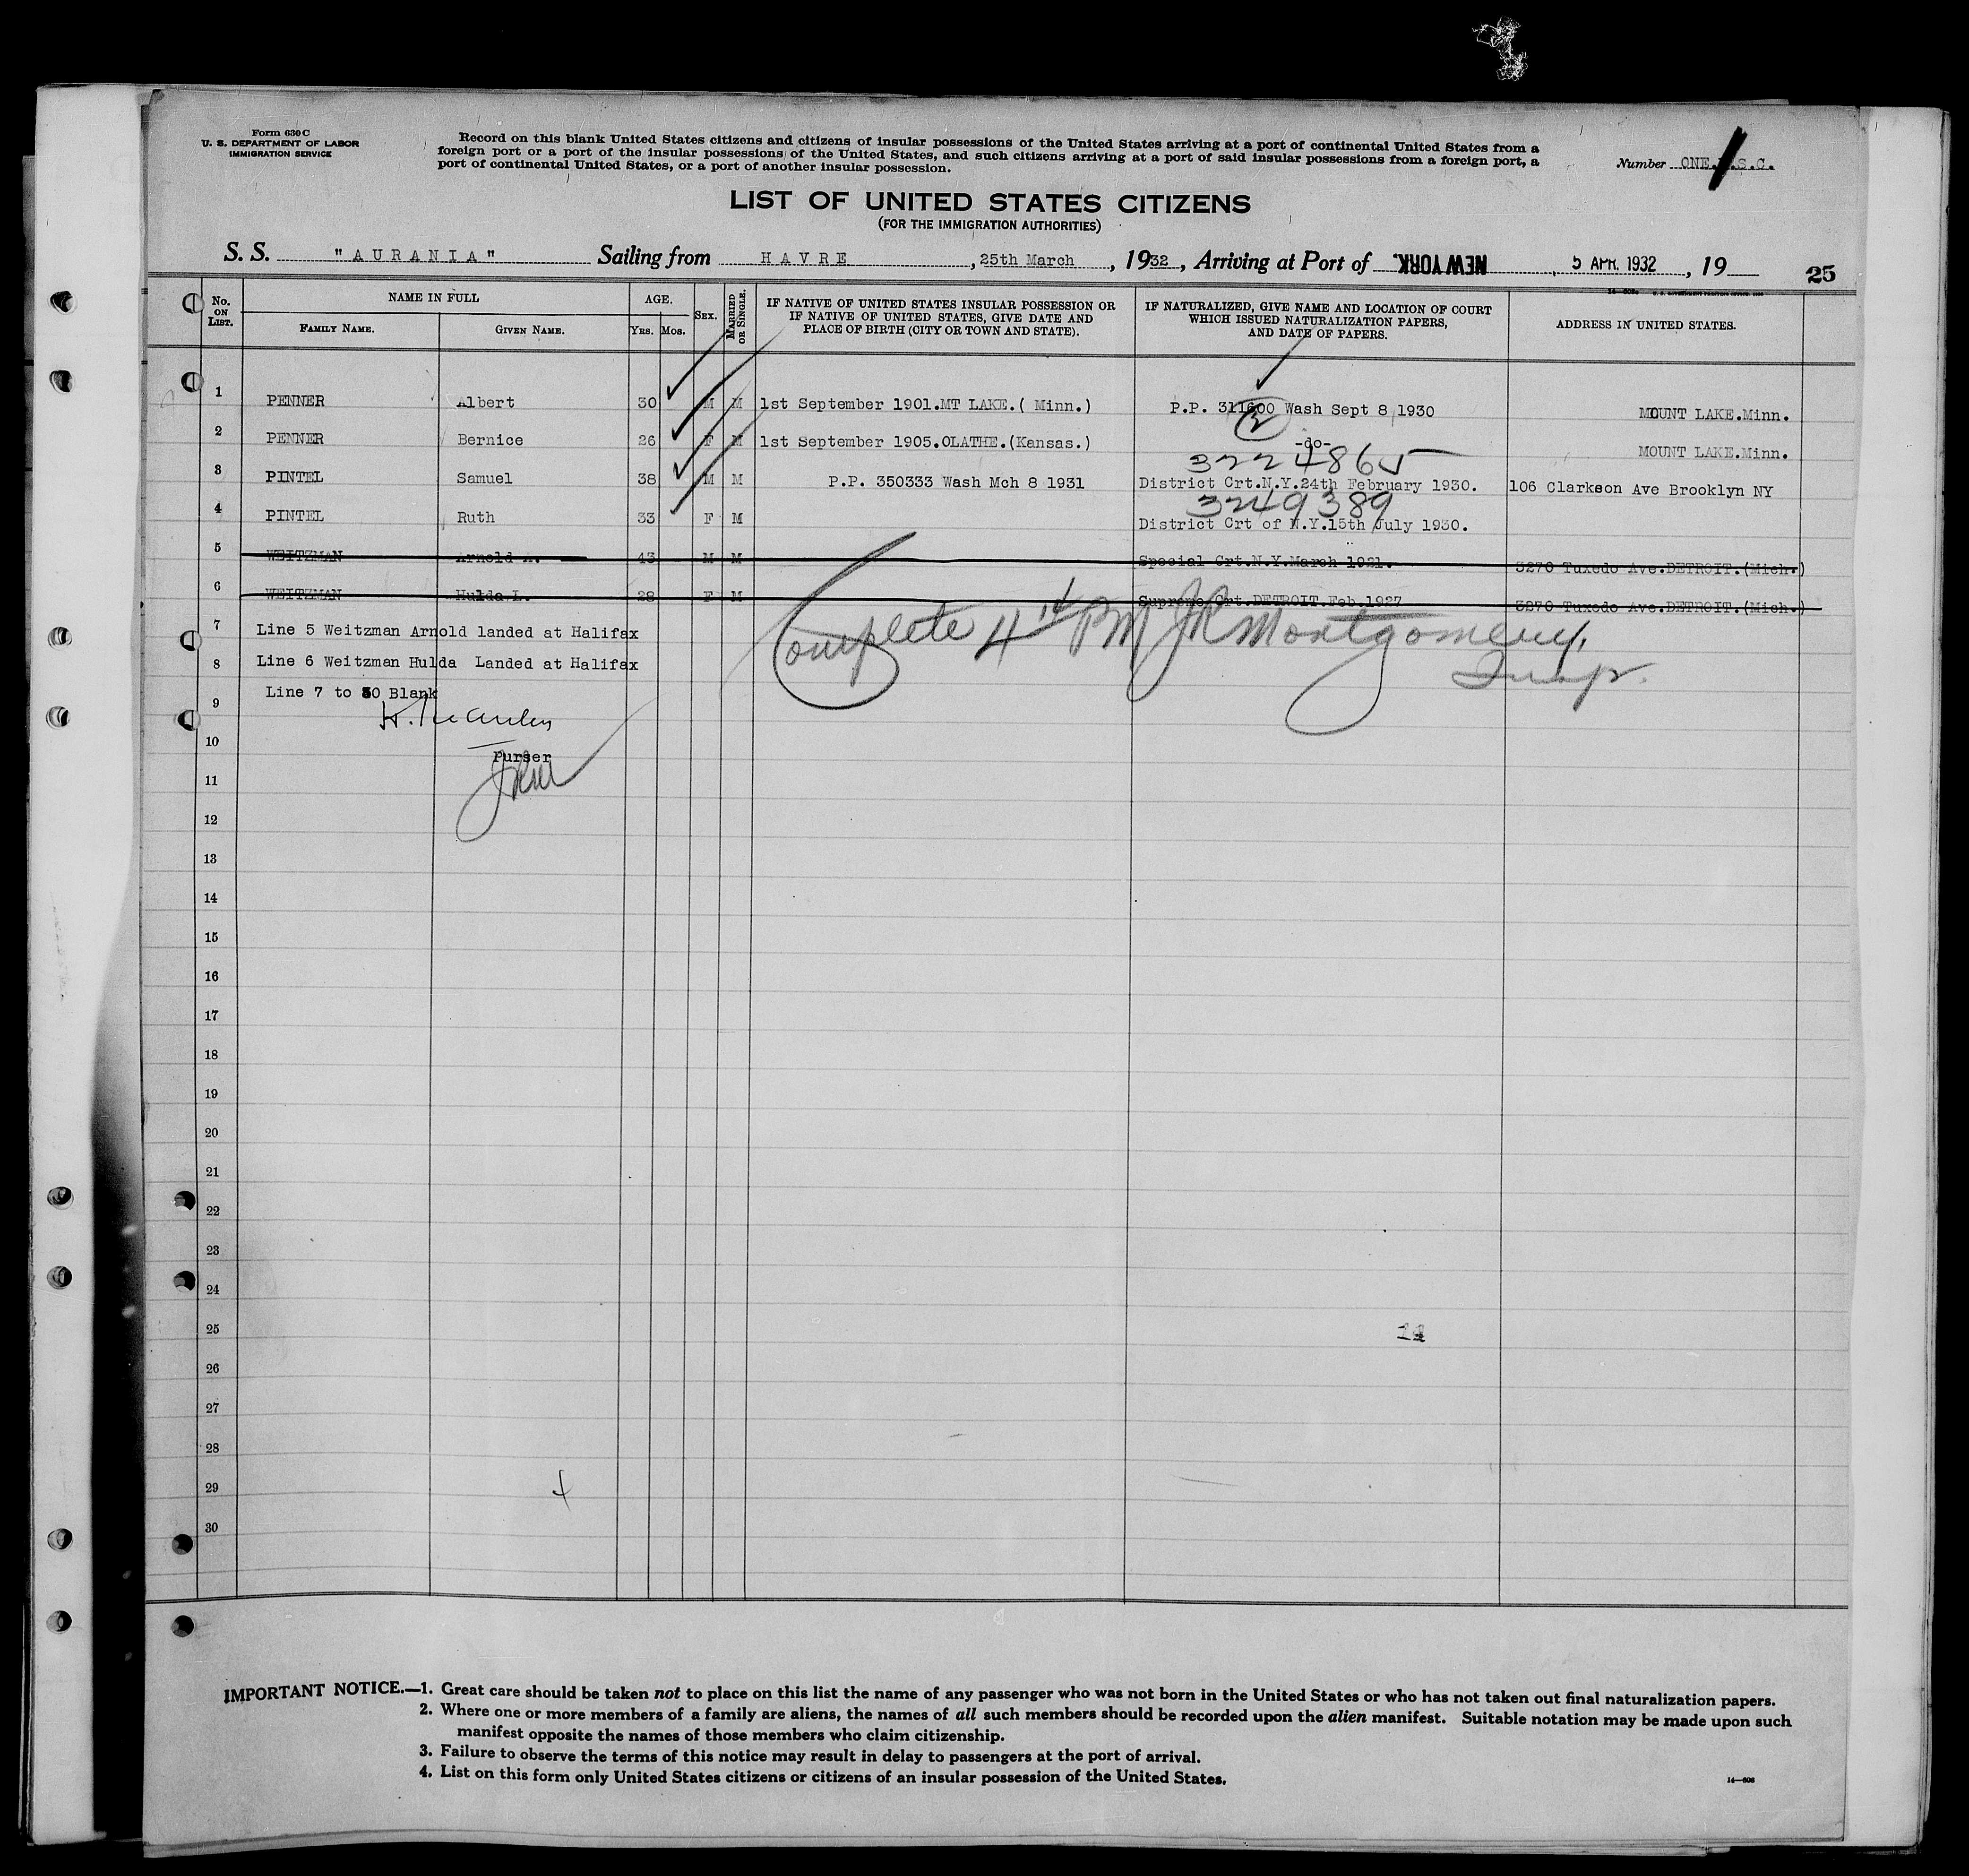 Form 630 C
U. S. DEPARTMENT OF LABOR
IMMIGRATION SERVICE
Record on this blank United States citizens and citizens of insular possessions of the United States arriving at a port of continental United States from a
foreign port or a port of the insular possessions of the United States, and such citizens arriving at a port of said insular possessions from a foreign port, a
port of continental United States, or a port of another insular possession.
Number ONE. .S.C.
LIST OF UNITED STATES CITIZENS
(FOR THE IMMIGRATION AUTHORITIES)
S. S. "AURANIA" Sailing from HAVRE, 25th March, 1932, Arriving at Port of NEW YORK, 5 APR. 1932, 19
25
No. ON LIST.
NAME IN FULL
FAMILY NAME. GIVEN NAME.
AGE.
YRS. MOS.
SEX.
MARRIED OR SINGLE.
IF NATIVE OF UNITED STATES INSULAR POSSESSION OR
IF NATIVE OF UNITED STATES, GIVE DATE AND
PLACE OF BIRTH (CITY OR TOWN AND STATE).
IF NATURALIZED, GIVE NAME AND LOCATION OF COURT
WHICH ISSUED NATURALIZATION PAPERS,
AND DATE OF PAPERS.
ADDRESS IN UNITED STATES.
1 PENNER Albert 30 M M 1st September 1901.MT LAKE.( Minn.) P.P. 311600 Wash Sept 8 1930 MOUNT LAKE.Minn.
2 PENNER Bernice 26 F M 1st September 1905.OLATHE.(Kansas.) -do- MOUNT LAKE.Minn.
3224865
3 PINTEL Samuel 38 M M P.P. 350333 Wash Mch 8 1931 District Crt.N.Y.24th February 1930. 106 Clarkson Ave Brooklyn NY
3249389
4 PINTEL Ruth 33 F M District Crt of N.Y.15th July 1930.
5 WEITZMAN Arnold A. 43 M M Special Crt.N.Y.March 1921. 3270 Tuxedo Ave.DETROIT.(Mich.)
6 WEITZMAN Hulda L. 28 F M Supreme Crt.DETROIT.Feb.1927 3270 Tuxedo Ave.DETROIT.(Mich.)
7 Line 5 Weitzman Arnold landed at Halifax
Complete 4 PM JR Montgomery,
Insp.
8 Line 6 Weitzman Hulda Landed at Halifax
9 Line 7 to 30 Blank
10
Purser
11
12
13
14
15
16
17
18
19
20
21
22
23
24
25
26
27
28
29
30
IMPORTANT NOTICE.—1. Great care should be taken not to place on this list the name of any passenger who was not born in the United States or who has not taken out final naturalization papers.
2. Where one or more members of a family are aliens, the names of all such members should be recorded upon the alien manifest. Suitable notation may be made upon such
manifest opposite the names of those members who claim citizenship.
3. Failure to observe the terms of this notice may result in delay to passengers at the port of arrival.
4. List on this form only United States citizens or citizens of an insular possession of the United States.
14—606